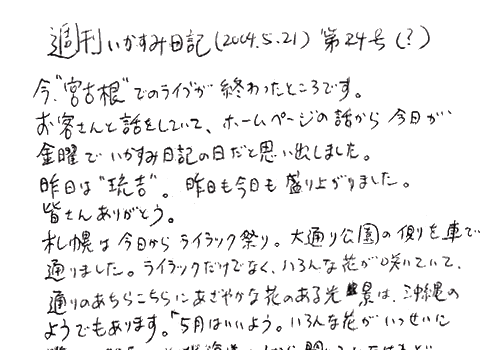 週刊いかすみ日記(2004.5.21) 第24号(?)
今、"宮古根"でのライブが終わったところです。
お客さんと話をしていて、ホームページの話から今日が、
金曜でいかすみ日記の日だと思い出しました。
昨日は"琉吉"。昨日も今日も盛り上がりました。
皆さんありがとう。
札幌は今日からライラック祭り。大通り公園の側を車で
通りました。ライラックだけでなく、いろんな花が咲いていて、
通りのあちらこちらにあざやかな花のある光景は、沖縄の
ようでもあります。「5月はいいよう。いろんな花がいっせいに